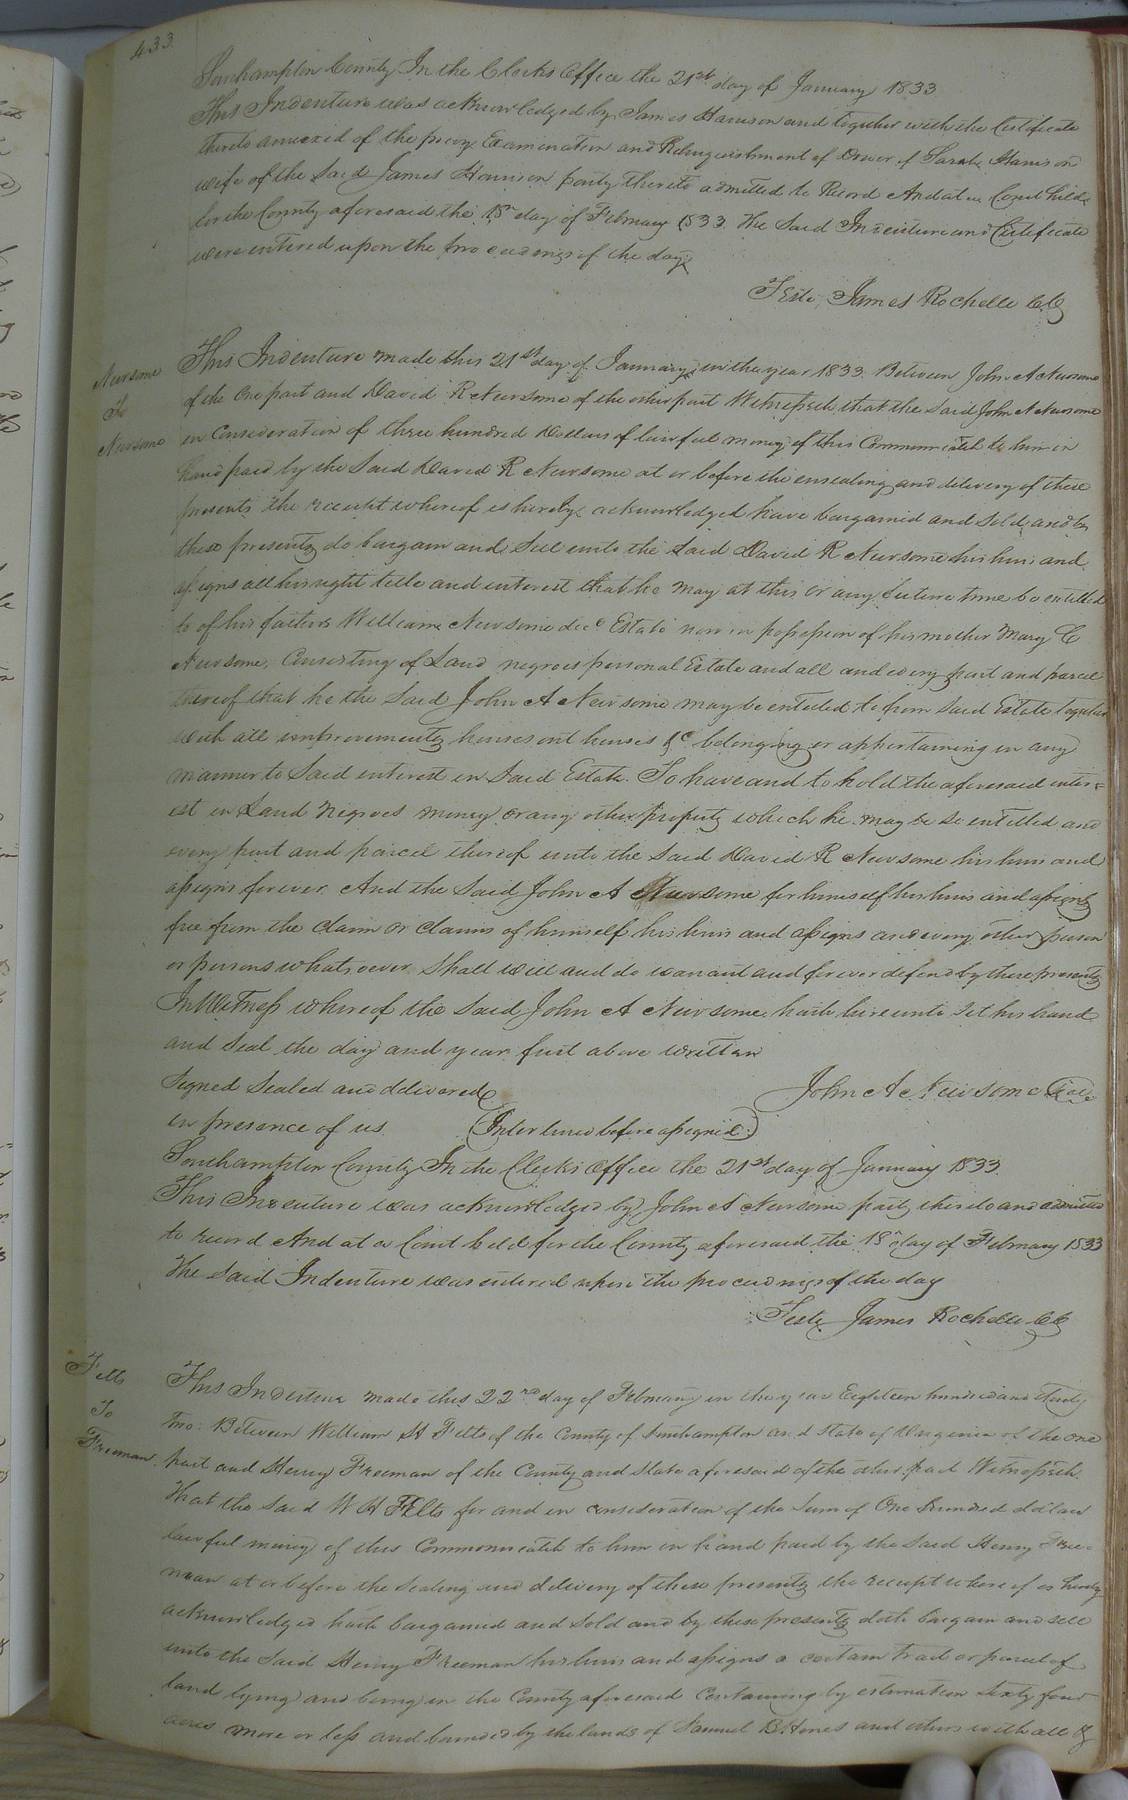 433
Southampton County In the Clerks Office the 21st day of January 1833
This Indenture was acknowledged by James Harrison and together with the Certificate
thereto annexed of the privy Examination and Relinquishment of Dower of Sarah Harrison
wife of the Said James Harrison party thereto admitted to Record And at a Court held
for the County aforesaid the 18th day of February 1833 The Said Indenture and Certificate
were entered upon the proceedings of the day
Teste, James Rochelle CC
Newsome
To
Newsome
This Indenture made this 21st day of January in the year 1833 Between John A Newsome
of the One part and David R Newsome of the other part Witnesseth that the Said John A Newsome
in Consideration of three hundred Dollars of lawful money of this Commonwealth to him in
hand paid by the Said David R Newsome at or before the ensealing and delivery of these
presents the receipt whereof is hereby acknowledged have bargained and Sold and by
these presents do bargain and Sell unto the Said David R Newsome his heirs and
assigns all his right title and interest that he may at this or any future time be entitled
to of his fathers William Newsome decd Estate now in possession of his mother Mary C
Newsome, Consisting of Land negroes personal Estate and all and every part and parcel
thereof that he the Said John A Newsome may be entitled to from Said Estate together
with all improvements houses out houses &c belonging or appertaining in any
manner to Said interest in Said Estate. To have and to hold the aforesaid inter=
est in Land Negroes money or any other property which he may be so entitled and
every part and parcel thereof unto the Said David R Newsome his heirs and
assigns forever And the Said John A Newsome for himself his heirs and assigns
free from the claim or claims of himself his heirs and assigns and every other person
or persons whatsoever Shall will and do warrant and forever defend by these presents
In Witness whereof the Said John A Newsome hath hereunto Set his hand
and Seal the day and year first above written
Signed Sealed and delivered
John A Newsome Seal
in presence of us
(Interlined before assigned)
Southampton County In the Clerks Office the 21st day of January 1833.
This Indenture was acknowledged by John A Newsome party thereto and admitted
to record And at a Court held for the County aforesaid the 18th day of February 1833
The Said Indenture was entered upon the proceedings of the day
Teste James Rochelle CC
Felts
To
Freeman
This Indenture made this 22nd day of February in the year Eighteen hundred and thirty
Two. Between William H Felts of the County of Southampton and State of Virginia of the one
part and Henry Freeman of the County and State aforesaid of the other part Witnesseth
That the Said W H Felts for and in consideration of the Sum of One hundred dollars
lawful money of this Commonwealth to him in hand paid by the Said Henry Free=
man at or before the Sealing and delivery of these presents the receipt whereof is hereby
acknowledged hath bargained and Sold and by these presents doth bargain and sell
unto the Said Henry Freeman his heirs and assigns a certain tract or parcel of
land lying and being in the County aforesaid Containing by estimation Sixty four
acres more or less and bounded by the lands of Samuel B Hines and others with all &